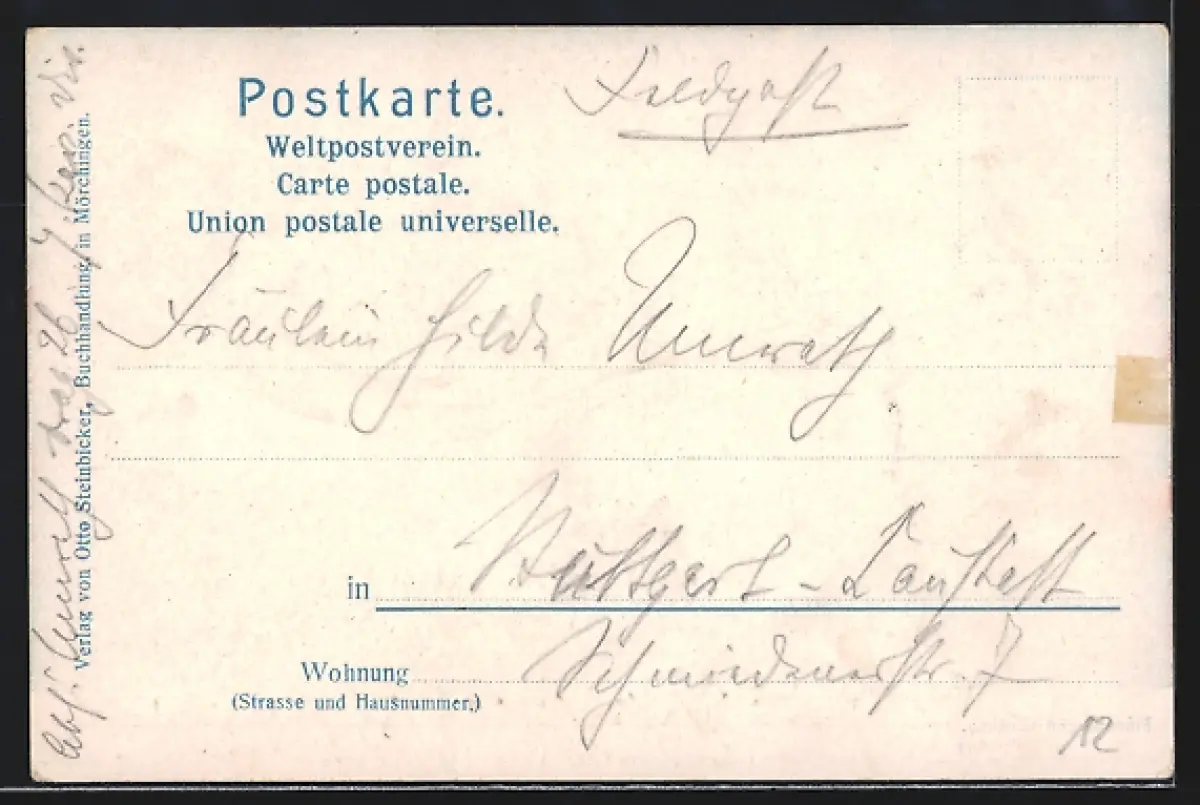 Postkarte.
Weltpostverein.
Carte postale.
Union postale universelle.
Feldpost
Fräulein Hilde Umrath
in Stuttgart - Cannstatt
Wohnung Schmidenerstr. 7
(Strasse und Hausnummer.)
12
Verlag von Otto Steinbicker, Buchhandlung in Mörchingen.
Abs: Umrath Drag 26 7 Kav. Div.